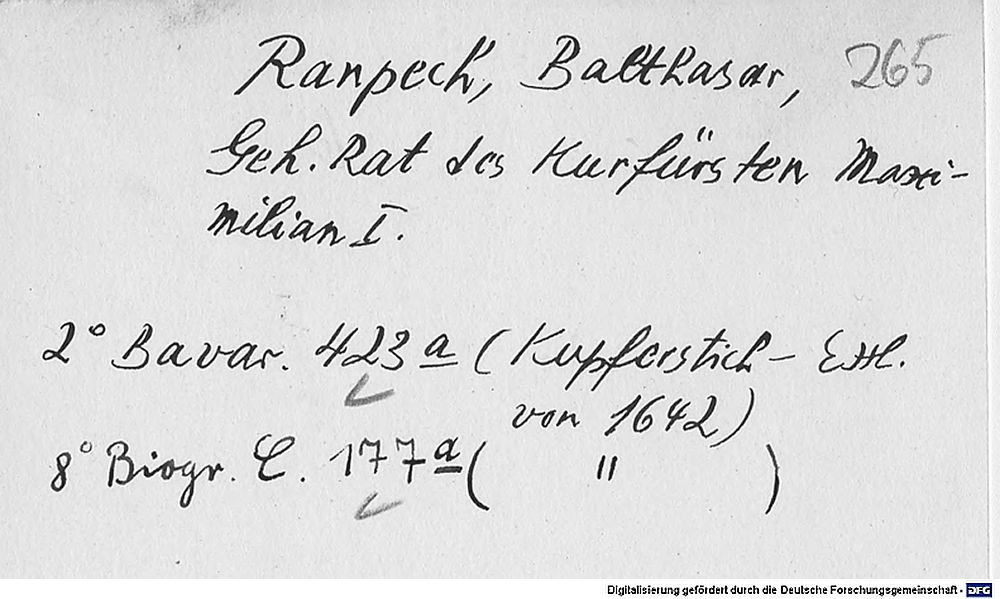 Ranpeck, Balthasar, 265
Geh. Rat des Kurfürsten Maxi-
milian I.
2° Bavar. 423 a (Kupferstich - Exl.
von 1642)
8° Biogr. C. 177 a ( " )
Digitalisierung gefördert durch die Deutsche Forschungsgemeinschaft - DFG